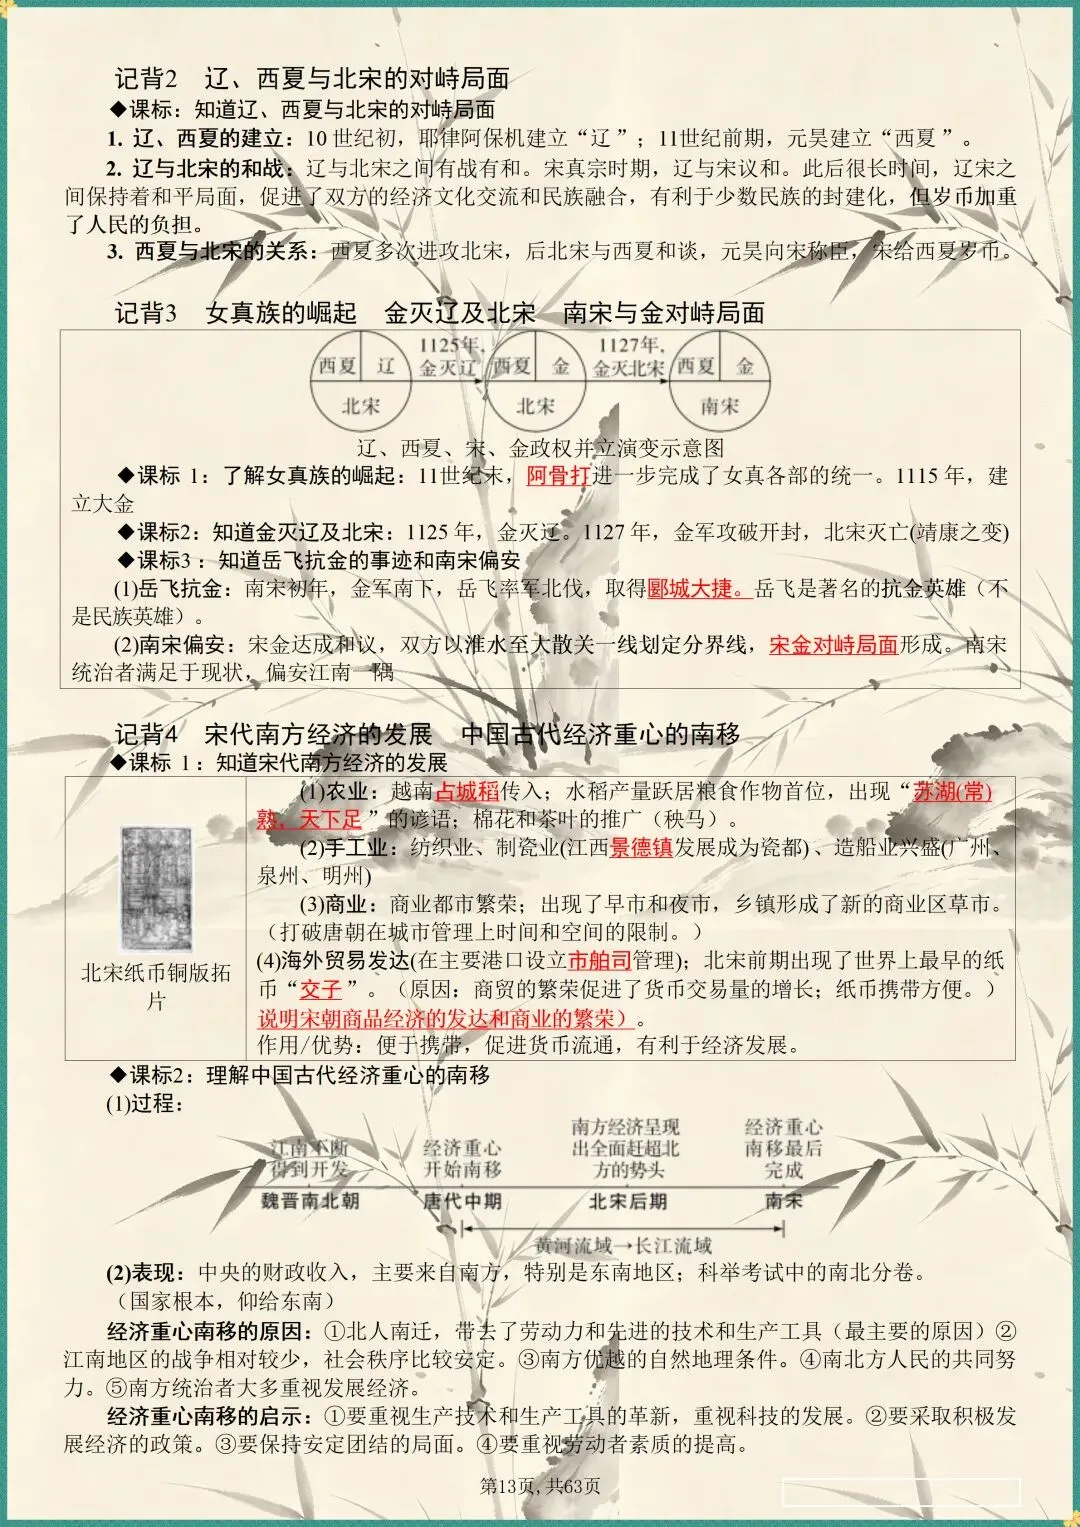 记背2 辽、西夏与北宋的对峙局面
◆课标：知道辽、西夏与北宋的对峙局面
1. 辽、西夏的建立：10世纪初，耶律阿保机建立“辽”；11世纪前期，元昊建立“西夏”。
2. 辽与北宋的和战：辽与北宋之间有战有和。宋真宗时期，辽与宋议和。此后很长时间，辽宋之
间保持着和平局面，促进了双方的经济文化交流和民族融合，有利于少数民族的封建化，但岁币加重
了人民的负担。
3. 西夏与北宋的关系：西夏多次进攻北宋，后北宋与西夏和谈，元昊向宋称臣，宋给西夏岁币。
记背3 女真族的崛起 金灭辽及北宋 南宋与金对峙局面
西夏 辽 北宋
1125年，
金灭辽
西夏 金 北宋
1127年，
金灭北宋
西夏 金 南宋
辽、西夏、宋、金政权并立演变示意图
◆课标 1：了解女真族的崛起：11世纪末，阿骨打进一步完成了女真各部的统一。1115 年，建
立大金
◆课标2：知道金灭辽及北宋：1125 年，金灭辽。1127 年，金军攻破开封，北宋灭亡(靖康之变)
◆课标3：知道岳飞抗金的事迹和南宋偏安
(1)岳飞抗金：南宋初年，金军南下，岳飞率军北伐，取得郾城大捷。岳飞是著名的抗金英雄（不
是民族英雄）。
(2)南宋偏安：宋金达成和议，双方以淮水至大散关一线划定分界线，宋金对峙局面形成。南宋
统治者满足于现状，偏安江南一隅
记背4 宋代南方经济的发展 中国古代经济重心的南移
◆课标 1：知道宋代南方经济的发展
北宋纸币铜版拓
片
(1)农业：越南占城稻传入；水稻产量跃居粮食作物首位，出现“苏湖(常)
熟，天下足”的谚语；棉花和茶叶的推广（秧马）。
(2)手工业：纺织业、制瓷业(江西景德镇发展成为瓷都)、造船业兴盛(广州、
泉州、明州)
(3)商业：商业都市繁荣；出现了早市和夜市，乡镇形成了新的商业区草市。
（打破唐朝在城市管理上时间和空间的限制。）
(4)海外贸易发达(在主要港口设立市舶司管理)；北宋前期出现了世界上最早的纸
币“交子”。（原因：商贸的繁荣促进了货币交易量的增长；纸币携带方便。）
说明宋朝商品经济的发达和商业的繁荣）。
作用/优势：便于携带，促进货币流通，有利于经济发展。
◆课标2：理解中国古代经济重心的南移
(1)过程：
江南不断
得到开发
魏晋南北朝
经济重心
开始南移
唐代中期
南方经济呈现
出全面赶超北
方的势头
北宋后期
经济重心
南移最后
完成
南宋
黄河流域→长江流域
(2)表现：中央的财政收入，主要来自南方，特别是东南地区；科举考试中的南北分卷。
（国家根本，仰给东南）
经济重心南移的原因：①北人南迁，带去了劳动力和先进的技术和生产工具（最主要的原因）②
江南地区的战争相对较少，社会秩序比较安定。③南方优越的自然地理条件。④南北方人民的共同努
力。⑤南方统治者大多重视发展经济。
经济重心南移的启示：①要重视生产技术和生产工具的革新，重视科技的发展。②要采取积极发
展经济的政策。③要保持安定团结的局面。④要重视劳动者素质的提高。
第13页, 共63页